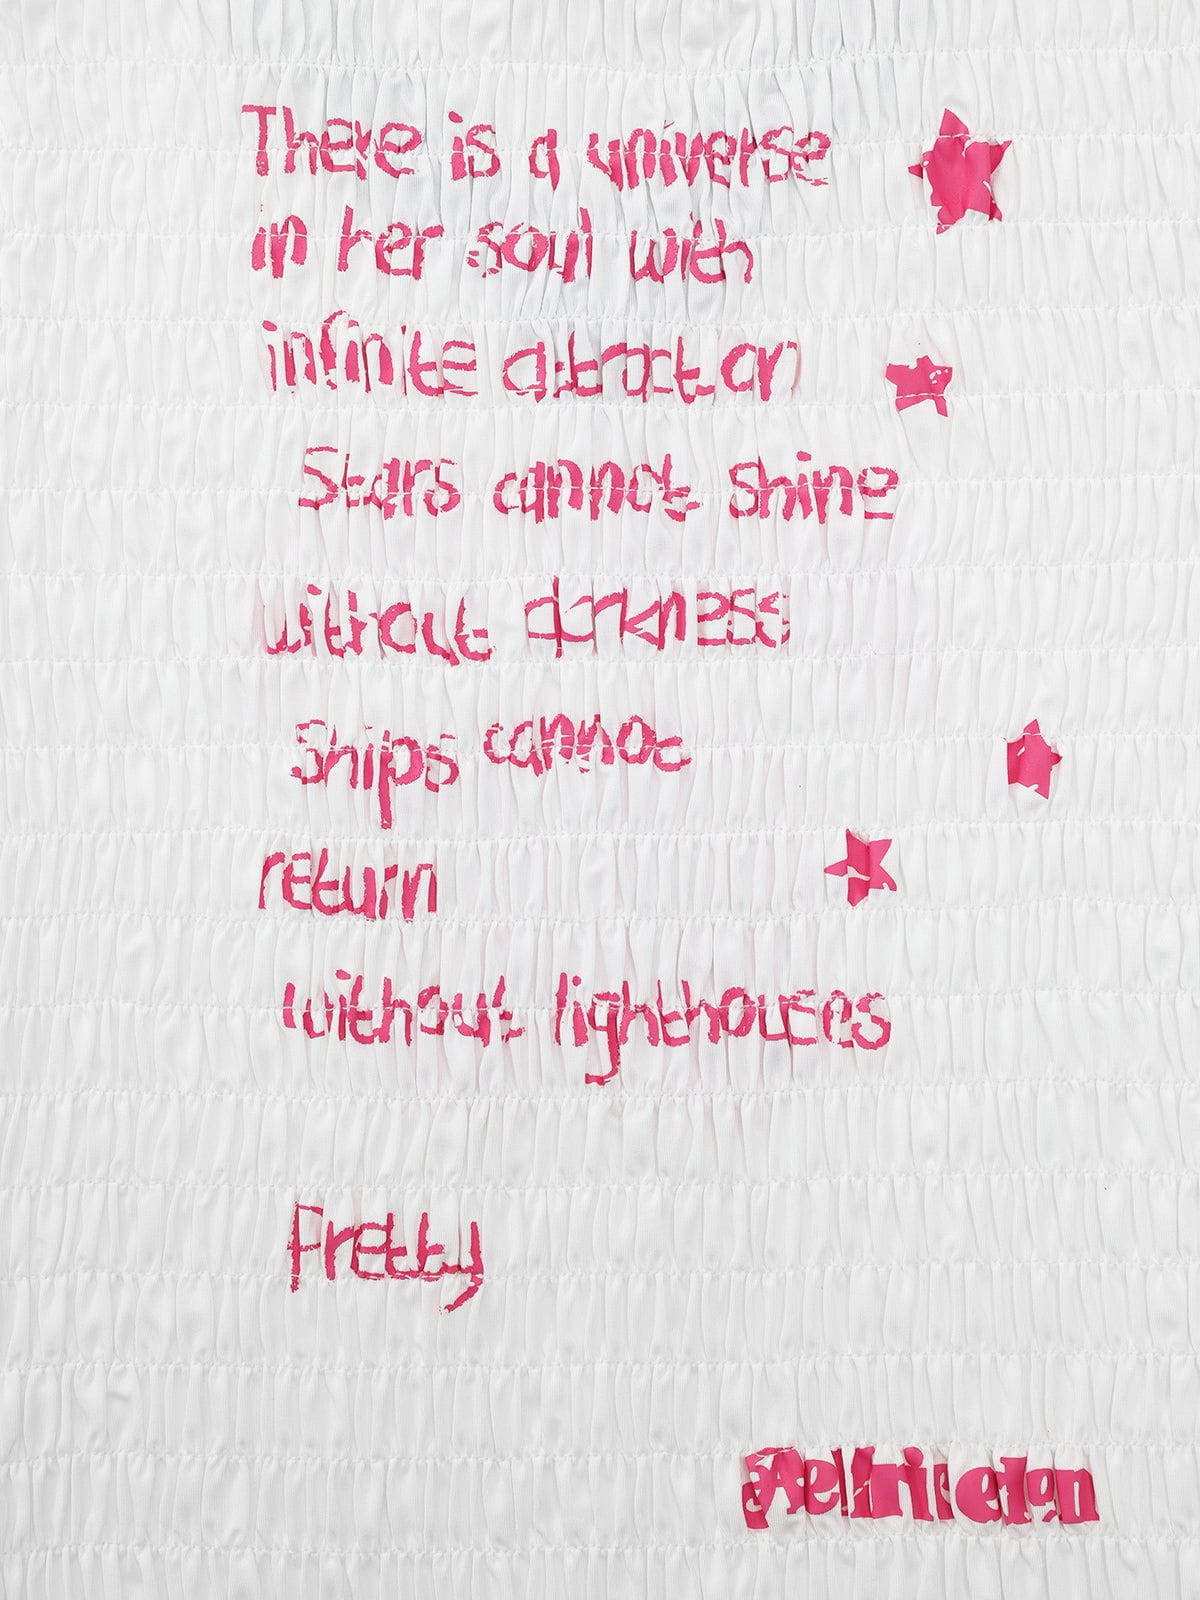 There is a universe
in her soul with
infinite attraction
Stars cannot shine
without darkness
Ships cannot
return
without lighthouses
Pretty